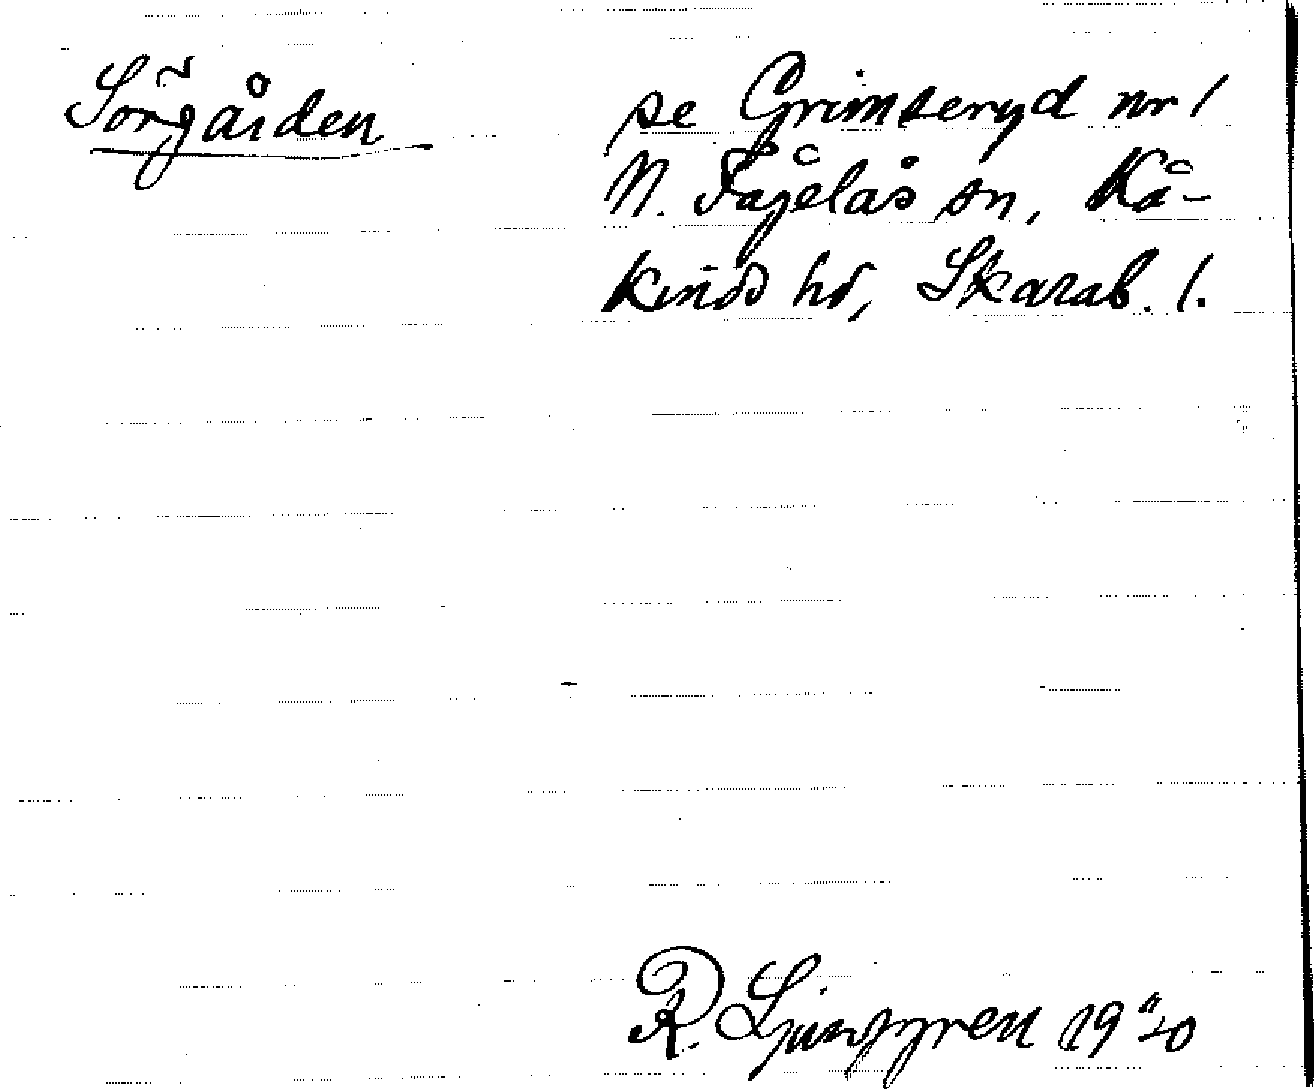 Sörgården
se Grimseryd nr 1
N. Fågelås sn, Kå-
kinds hd, Skarab. l.
R. Ljunggren